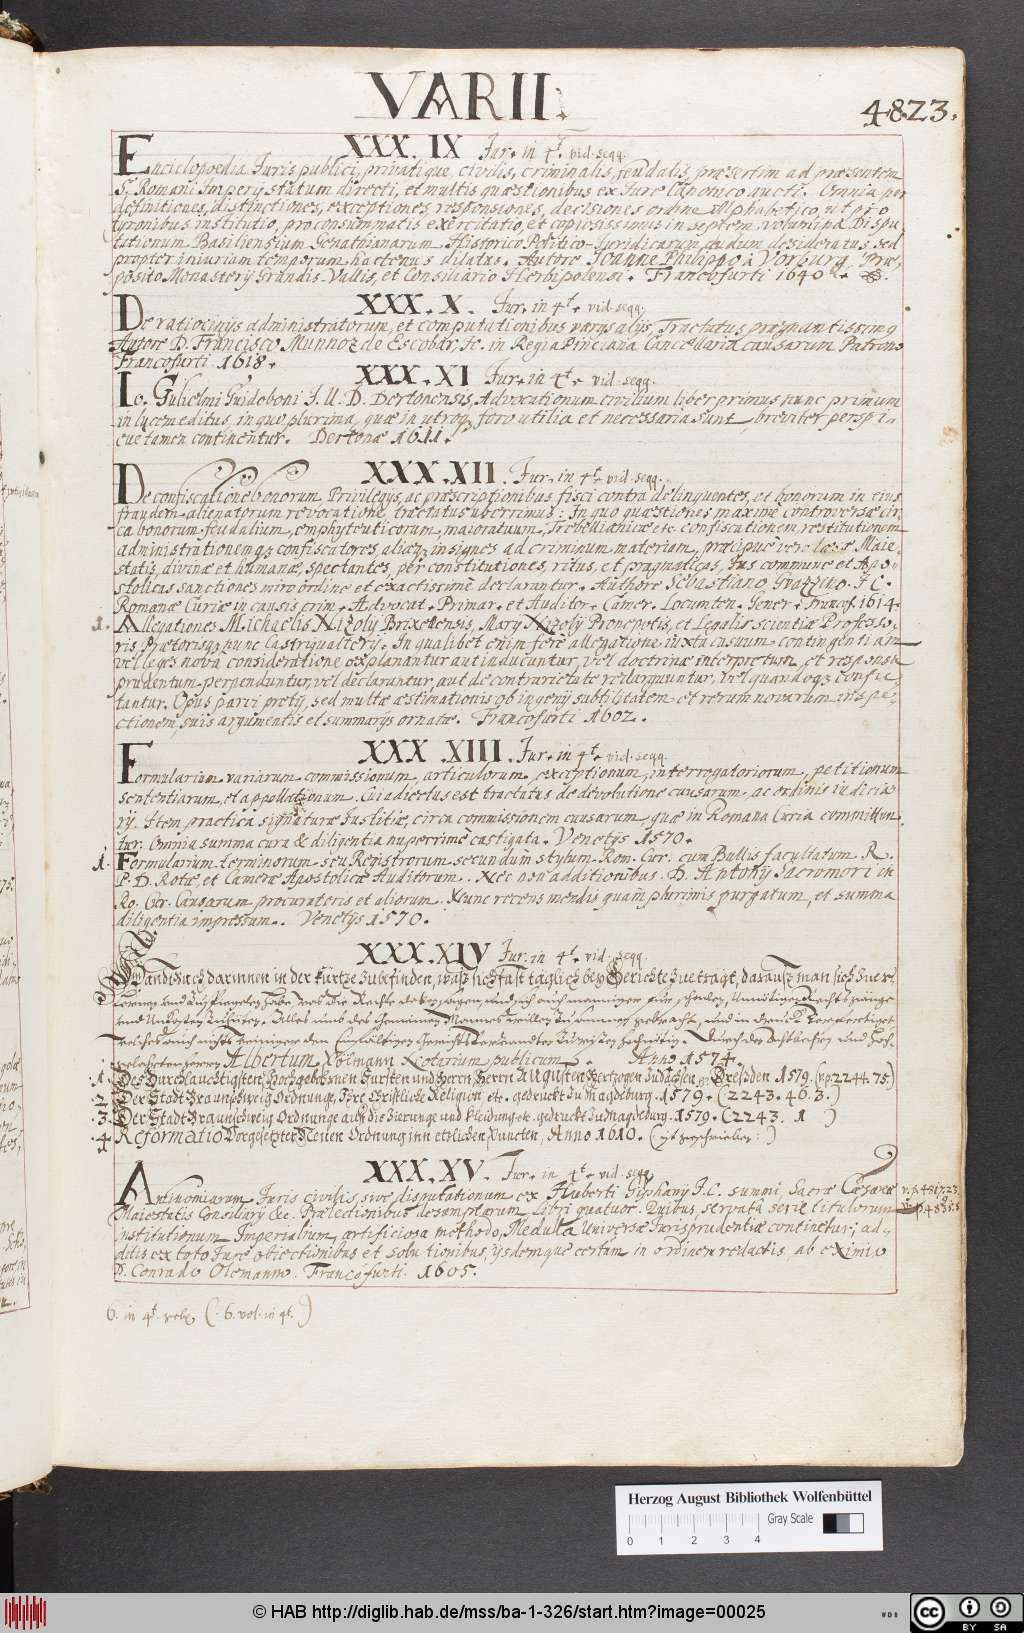 VARII.
4823.
XXX. IX Jur. in 4t. vid. seqq.
Enciclopoedia Juris publici, privatique, civilis, criminalis, feudalis, præsertim ad præsentem
S. Romani Imperij statum directi, et multis quæstionibus ex Jure Canonico aucti. Omnia per
definitiones, distinctiones, exceptiones, responsiones, decisiones ordine Alphabetico, ut pro
tyronibus institutio, pro consummatis exercitatio, et copiosissimus in septem volumina Dispu
tationum Basiliensium Historico Politico-Juridicarum dudum desideratus sed
propter iniuriam temporum hactenus dilatus. Autore Joanne Philippo à Vorburg, Præ-
posito Monasterij Grandis Vallis, et Consiliario Herbipolensi. Francofurti 1640.
XXX. X. Jur. in 4t. vid. seqq.
De ratiocinijs administratorum, et computationibus varijs alijs, Tractatus prægnantissimus
Autore D. Francisco Munnoz de Escobar, Jc. in Regia Pinciana Cancellaria causarum Patrono
Francofurti 1618.
XXX. XI Jur. in 4t. vid. seqq.
Io. Gulielmi Guidoboni J. U. D. Dertonensis, Advocationum civilium liber primus nunc primum
in lucem editus, in quo plurima, quæ in utroq; foro utilia et necessaria sunt, breviter perspi-
cue tamen continentur. Dertonæ 1611.
XXX. XII. Jur. in 4t. vid. seqq.
De confiscatione bonorum Privilegijs, ac præscriptionibus fisci contra delinquentes, et bonorum in eius
fraudem alienatorum revocatione, tractatus uberrimus: In quo quæstiones maximè controversæ cir
ca bonorum feudalium, emphyteuticorum, maioratuum, Trebellianicæ etc. confiscationem restitutionem
administrationemq; confiscatores, aliæq; insignes ad criminum materiam, præcipuè vero læsæ Maie-
statis, divinæ et humanæ, spectantes, per constitutiones, ritus, et pragmaticas, Jus commune et Apo-
stolicas sanctiones miro ordine et exactissimè declarantur. Authore Sebastiano Guazzino. J C.
Romanæ Curiæ in causis crim. Advocat. Primar. et Auditor. Camer. Locumten. Gener. Francof. 1614
1. Allegationes Michaelis Nizolij Brixellensis, Marij Nizolij Pronepotis, et Legalis scientiæ Professo-
ris Prætorisq; nunc Castrigualterij. In qualibet enim fere allegatione iuxta casuum contingentiam
vel leges nova consideratione explanantur aut inducuntur, vel doctrinæ interpretum, et responsa
prudentum perpenduntur, vel declarantur, aut de contrarietate redarguuntur, vel quandoq; confu-
tantur. Opus parvi pretij, sed multæ æstimationis ob ingenij subtilitatem et rerum novarum inspe-
ctionem, suis argumentis et summarijs ornatæ. Francofurti 1602.
XXX. XIII. Jur. in 4t. vid. seqq.
Formularium variarum commissionum, articulorum, exceptionum, interrogatoriorum, petitionum
sententiarum, et appellationum. Cui adiectus est tractatus de devolutione causarum, ac ordinis iudicia
rij. Item practica signaturæ Justitiæ, circa commissionem causarum, quæ in Romana Curia committun
tur. Omnia summa cura & diligentia nuperrimè castigata. Venetijs 1570.
1. Formularium terminorum seu Registrorum secundum stylum Rom. Cur. cum Bullis facultatum. R.
P. D. Rotæ, et Cameræ Apostolicæ Auditorum. Nec non additionibus. D. Antonij Sacromori in
Ro. Cur. Causarum procuratoris et aliorum. Nunc recens mendis quam plurimis purgatum, et summa
diligentia impressum. Venetijs 1570.
XXX. XIV Jur. in 4t. vid. seqq.
Handtbuch darinnen in der kürtze zu befinden, was sich fast täglich bey Gerichte zuetregt, daraus man sich zu er-
gelehrten herren Albertum Pölmann Notarium publicum. Anno 1574.
1. Des Durchlauchtigsten, Hochgebohrnen Fursten und Herrn, Herrn Augusten Hertzogen zu Sachsen, Dreszden 1579. (v. p. 2244. 75.)
2. Der Stadt Braunschweig Ordnunge, Ihre Christliche Religion, etc. gedruckt zu Magdeburg. 1579. (2243. 46. 3.)
3. Der Stadt Braunschweig Ordnunge auff die Zierunge und kleidung etc. gedruckt zu Magdeburg. 1579. (2243. 1 )
4. Reformatio Vorgesetzter Neuen Ordnung inn etzlichen Puncten, Anno 1610. (ist geschrieben:)
XXX. XV. Jur. in 4t. vid. seqq.
Antinomiarum Juris civilis, sive disputationum ex Huberti Giphanij J. C. summi, Sacræ Cæsareæ v. p. 4817. 23.
Maiestatis Consiliarij &c. Prælectionibus desumptarum Libri quatuor. Quibus, servatâ serie titulorum
Institutionum Imperialium, artificiosa methodo, Medulla Universæ Jurisprudentiæ continetur; ad-
ditis ex toto Jure obiectionibus et solutionibus, ijsdemque certum in ordinem redactis, ab eximio
D. Conrado Olemanno. Francofurti. 1605.
6. in 4t. (. 6. vol. in 4t.)
Herzog August Bibliothek Wolfenbüttel
Gray Scale
0 1 2 3 4
© HAB http://diglib.hab.de/mss/ba-1-326/start.htm?image=00025
WDB
cc BY SA